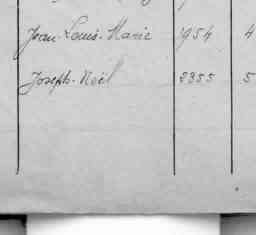 Jean-Louis-Marie 954 4
Joseph-Noël 2355 5